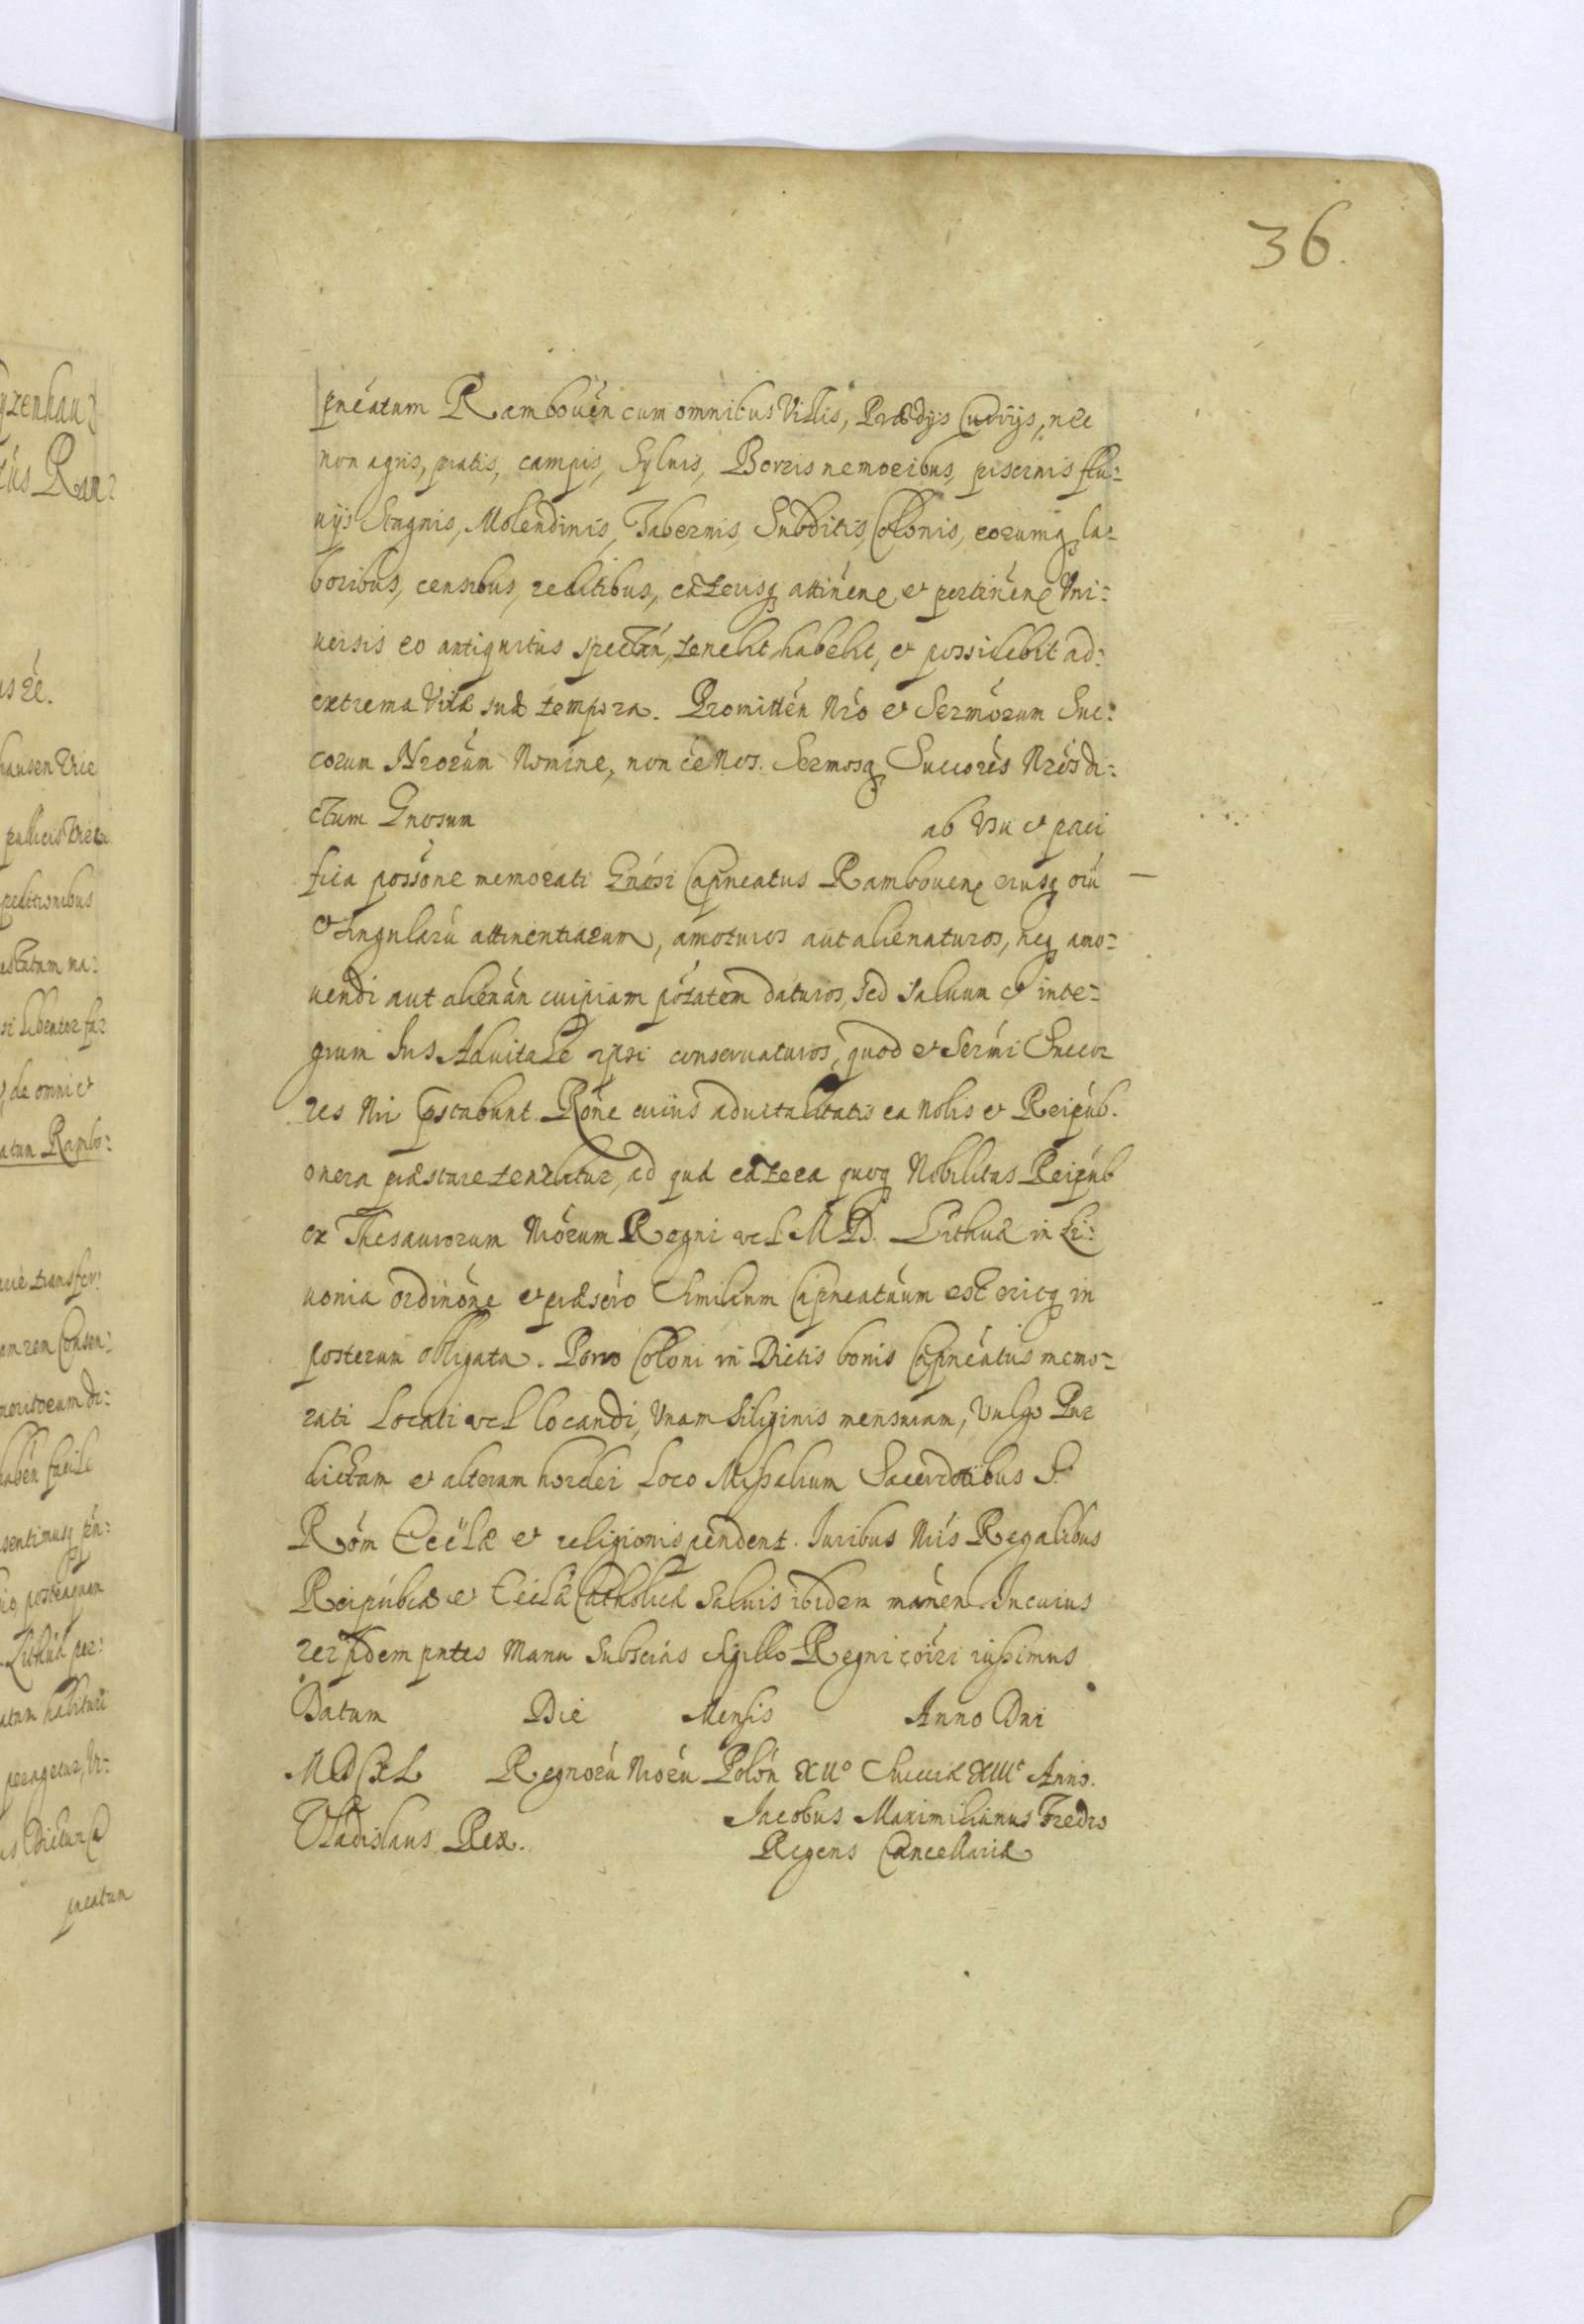 36.
pneatum Rambouen cum omnibus Villis, Prædijs Curijs, nec
non agris, pratis, campis, Syluis, Borris nemoribus, piscinis flu-
uijs Stagnis, Molendinis, Tabernis, Subditis, Colonis, eorumq la-
boribus, censibus, reditibus, cæterisq attinen et pertinen Vni-
uersis eo antiquitus spectan, tenebit habebit, et possidebit ad
extrema Vitæ suæ tempora. Promitten Nro et Sermorum Suc-
corum Nrorum Nomine, non ee Nos. Sermosq Succores Nros di-
ctum Gnosum ab Vsu et paci
fica possone memorati Gnosi Capneatus Rambouen eiusq oiu
et singularu attinentiarum, amoturos aut alienaturos, neq amo-
uendi aut alienan cuipiam potatem daturos, sed saluum et inte-
grum Ius Aduitale ipsi conseruaturos, quod et Sermi Succor
res Nri pstabunt. Rone cuius aduitalitatis ea Nobis et Reipub.
onera præstare tenebitur, ad quæ cætera quoq Nobilitas Reipub
ex Thesaurorum Nrorum Regni vel M D. Lithuæ in Li-
uonia ordinone et præscro Similium Capneatuum est eritq in
posterum obligata. Porro Coloni in Dictis bonis Capneatus memo-
rati Locati vel locandi, Vnam siliginis mensuram, Vulgo Pur
dictam et alteram hordei Loco Missalium Sacerdotibus S.
Rom Ecclæ et religionis pendent. Iuribus Nris Regalibus
Reipublæ et Ecclæ Catholicæ Saluis ibidem manen. In cuius
rei fidem pntes Manu Subscras Sigillo Regni coiri iussimus
Datum Die Mensis Anno Dni
MDCXL Regnoru Nroru Polon XIIo Sueciæ XIIIo Anno.
Vladislaus Rex. Jacobus Maximilianus Fredro
Regens Cancellariæ